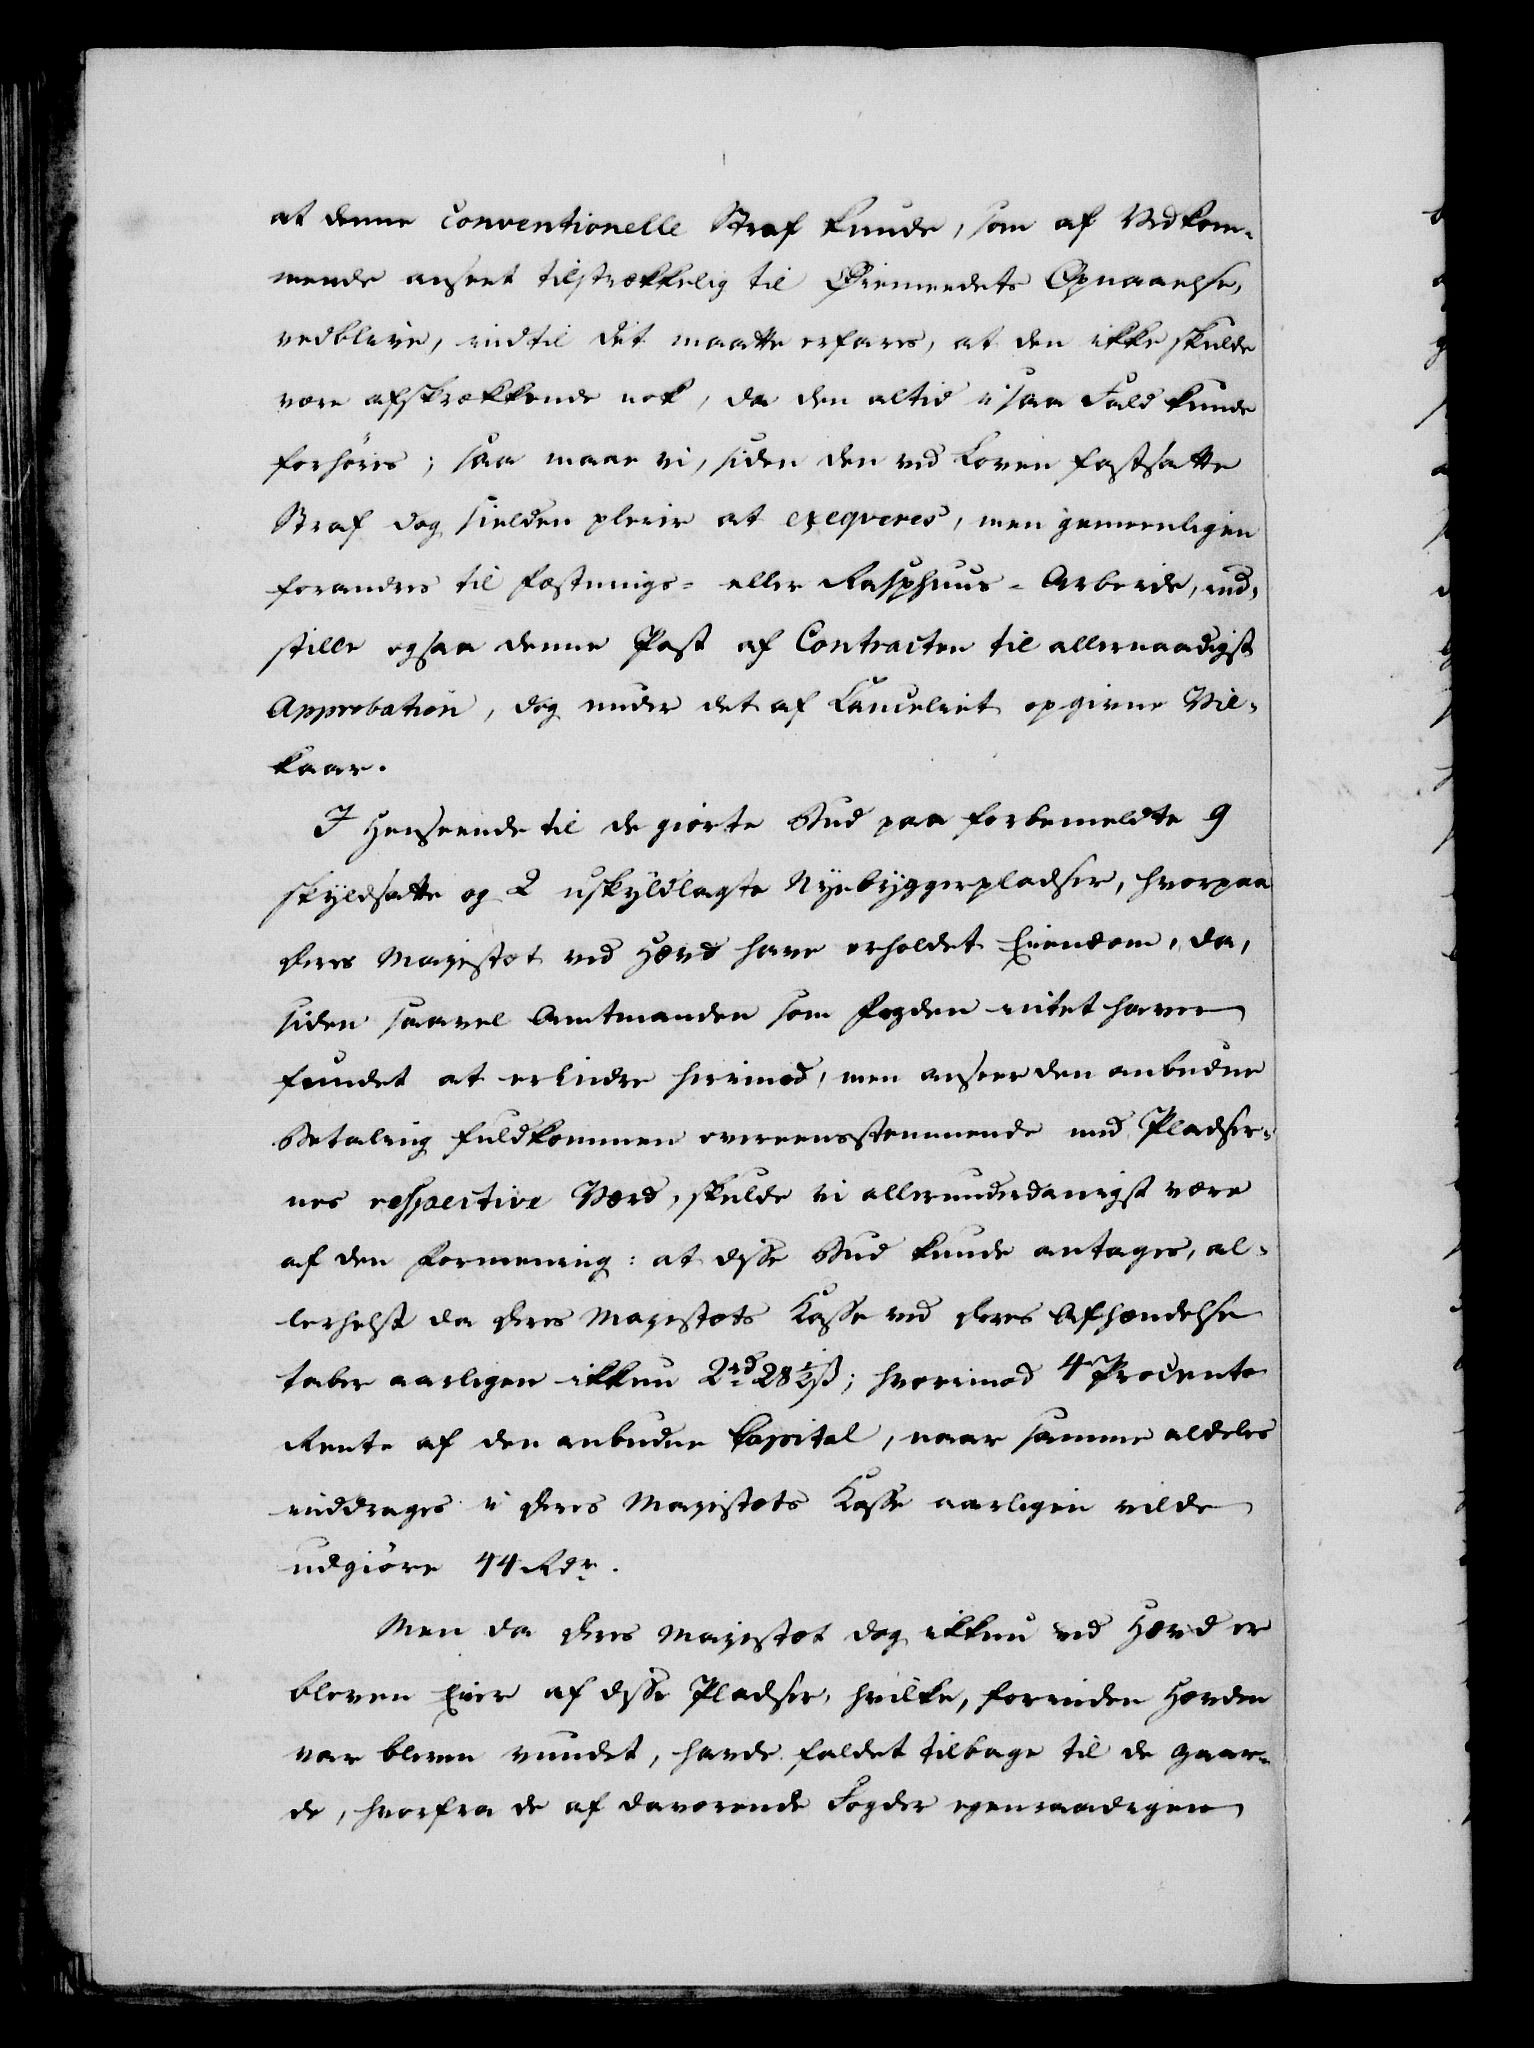 at denne conventionelle Straf kunde, som af Vedkom-
mende anseet tilstrækkelig til Øiemeedets Opnaaelse,
vedblive, indtil det maatte erfares, at den ikke skulde
være afskrækkende nok, da den altid i saa Fald kunde
forhöies; saa maae vi, siden den ved Loven fastsatte
Straf dog sielden pleier at exeqveres, men gemeenligen
forandres til Fæstnings- eller Rasphuus-Arbeide, ind-
stille ogsaa denne Post af Contracten til allernaadigst
Approbation, dog under det af Cancelliet opgivne Vil-
kaar.
I Henseende til de giorte Bud paa forbemeldte 9
skyldsatte og 2 uskyldlagte Nyebyggerpladser, hvorpaa
Deres Majestæt ved Hævd have erholdet Eiendom, da,
siden saavel Amtmanden som Fogden intet haver
fundet at erindre herimod, men anseer den anbudne
Betaling fuldkommen overeensstemmende med Pladser-
nes respective Værd, skulde vi allerunderdanigst være
af den Formening: at disse Bud kunde antages, al-
lerhelst da Deres Majestæts Kasse ved deres Afhændelse
taber aarligen ikkun 2 rd 28 1/2 ß; hvorimod 4 Procento
Rente af den anbudne Kapital, naar samme aldeles
inddrages i Deres Majestæts Kasse aarligen vilde
udgiöre 44 Rdr.
Men da Deres Majestæt dog ikkun ved Hævd er
bleven Eier af disse Pladser, hvilke, forinden Hævden
var bleven vundet, havde faldet tilbage til de Gaar-
de, hvorfra de af daværende Fogder egenraadigen